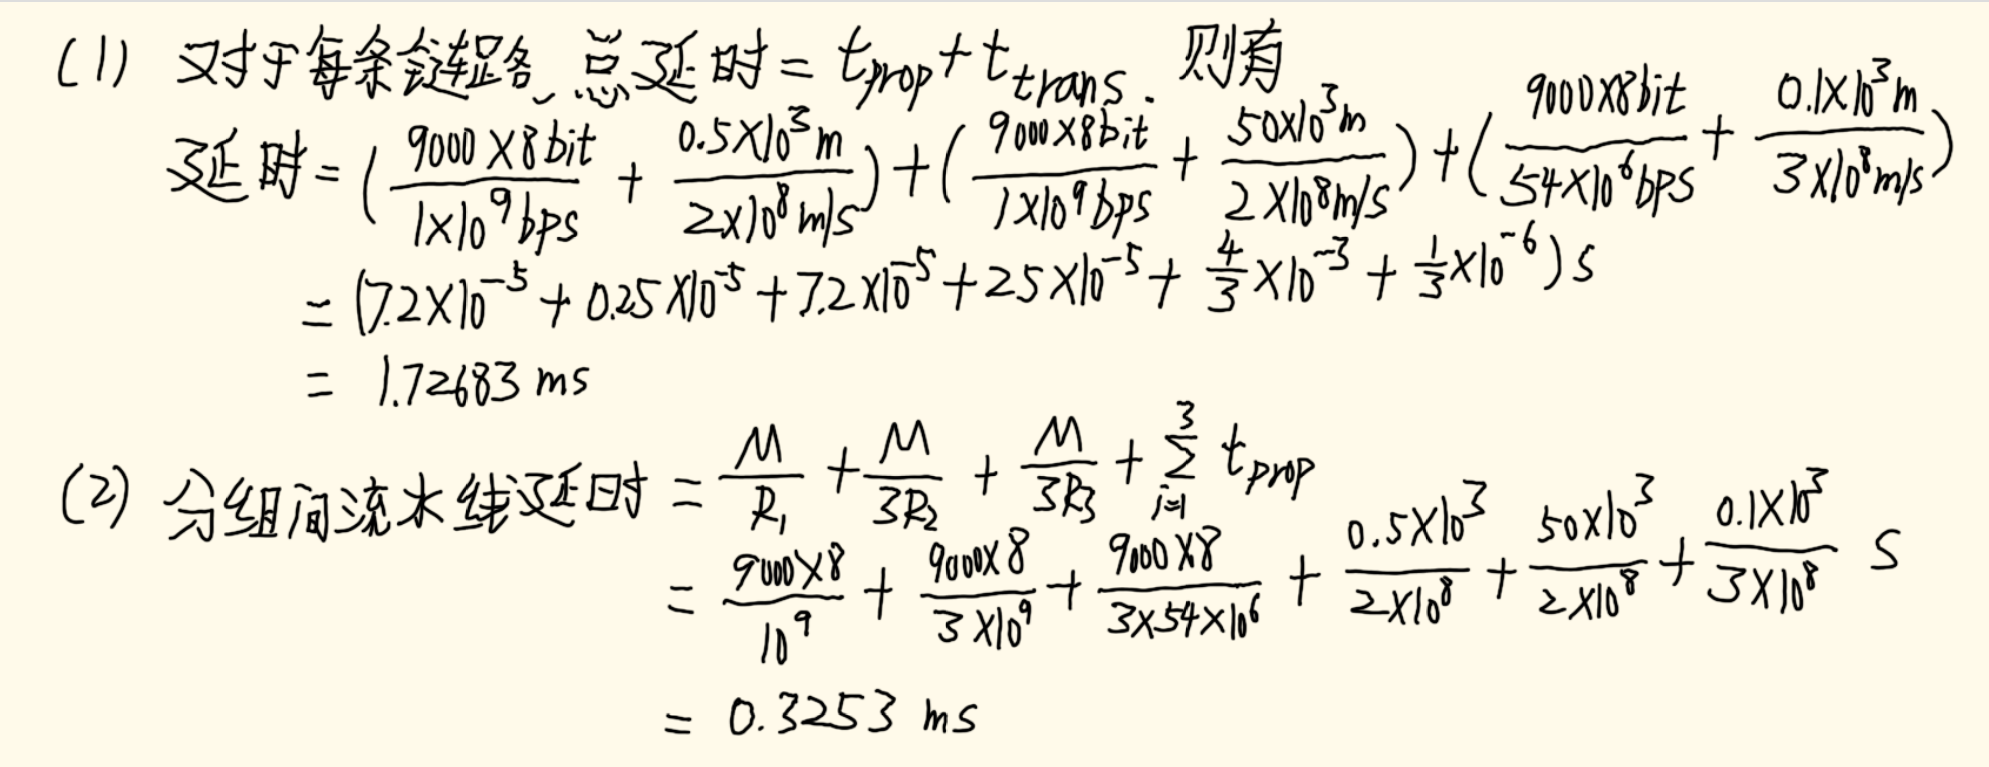 (1) 对于每条链路、总延时 = t_prop + t_trans. 则有
延时 = (9000×8bit / 1×10^9bps + 0.5×10^3m / 2×10^8m/s) + (9000×8bit / 1×10^9bps + 50×10^3m / 2×10^8m/s) + (9000×8bit / 54×10^6bps + 0.1×10^3m / 3×10^8m/s)
= (7.2×10^-5 + 0.25×10^-5 + 7.2×10^-5 + 25×10^-5 + 4/3×10^-3 + 1/3×10^-6) s
= 1.72683 ms
(2) 分组间流水线延时 = M/R_1 + M/3R_2 + M/3R_3 + Σ_{i=1}^{3} t_prop
= 9000×8 / 10^9 + 9000×8 / 3×10^9 + 9000×8 / 3×54×10^6 + 0.5×10^3 / 2×10^8 + 50×10^3 / 2×10^8 + 0.1×10^3 / 3×10^8 s
= 0.3253 ms